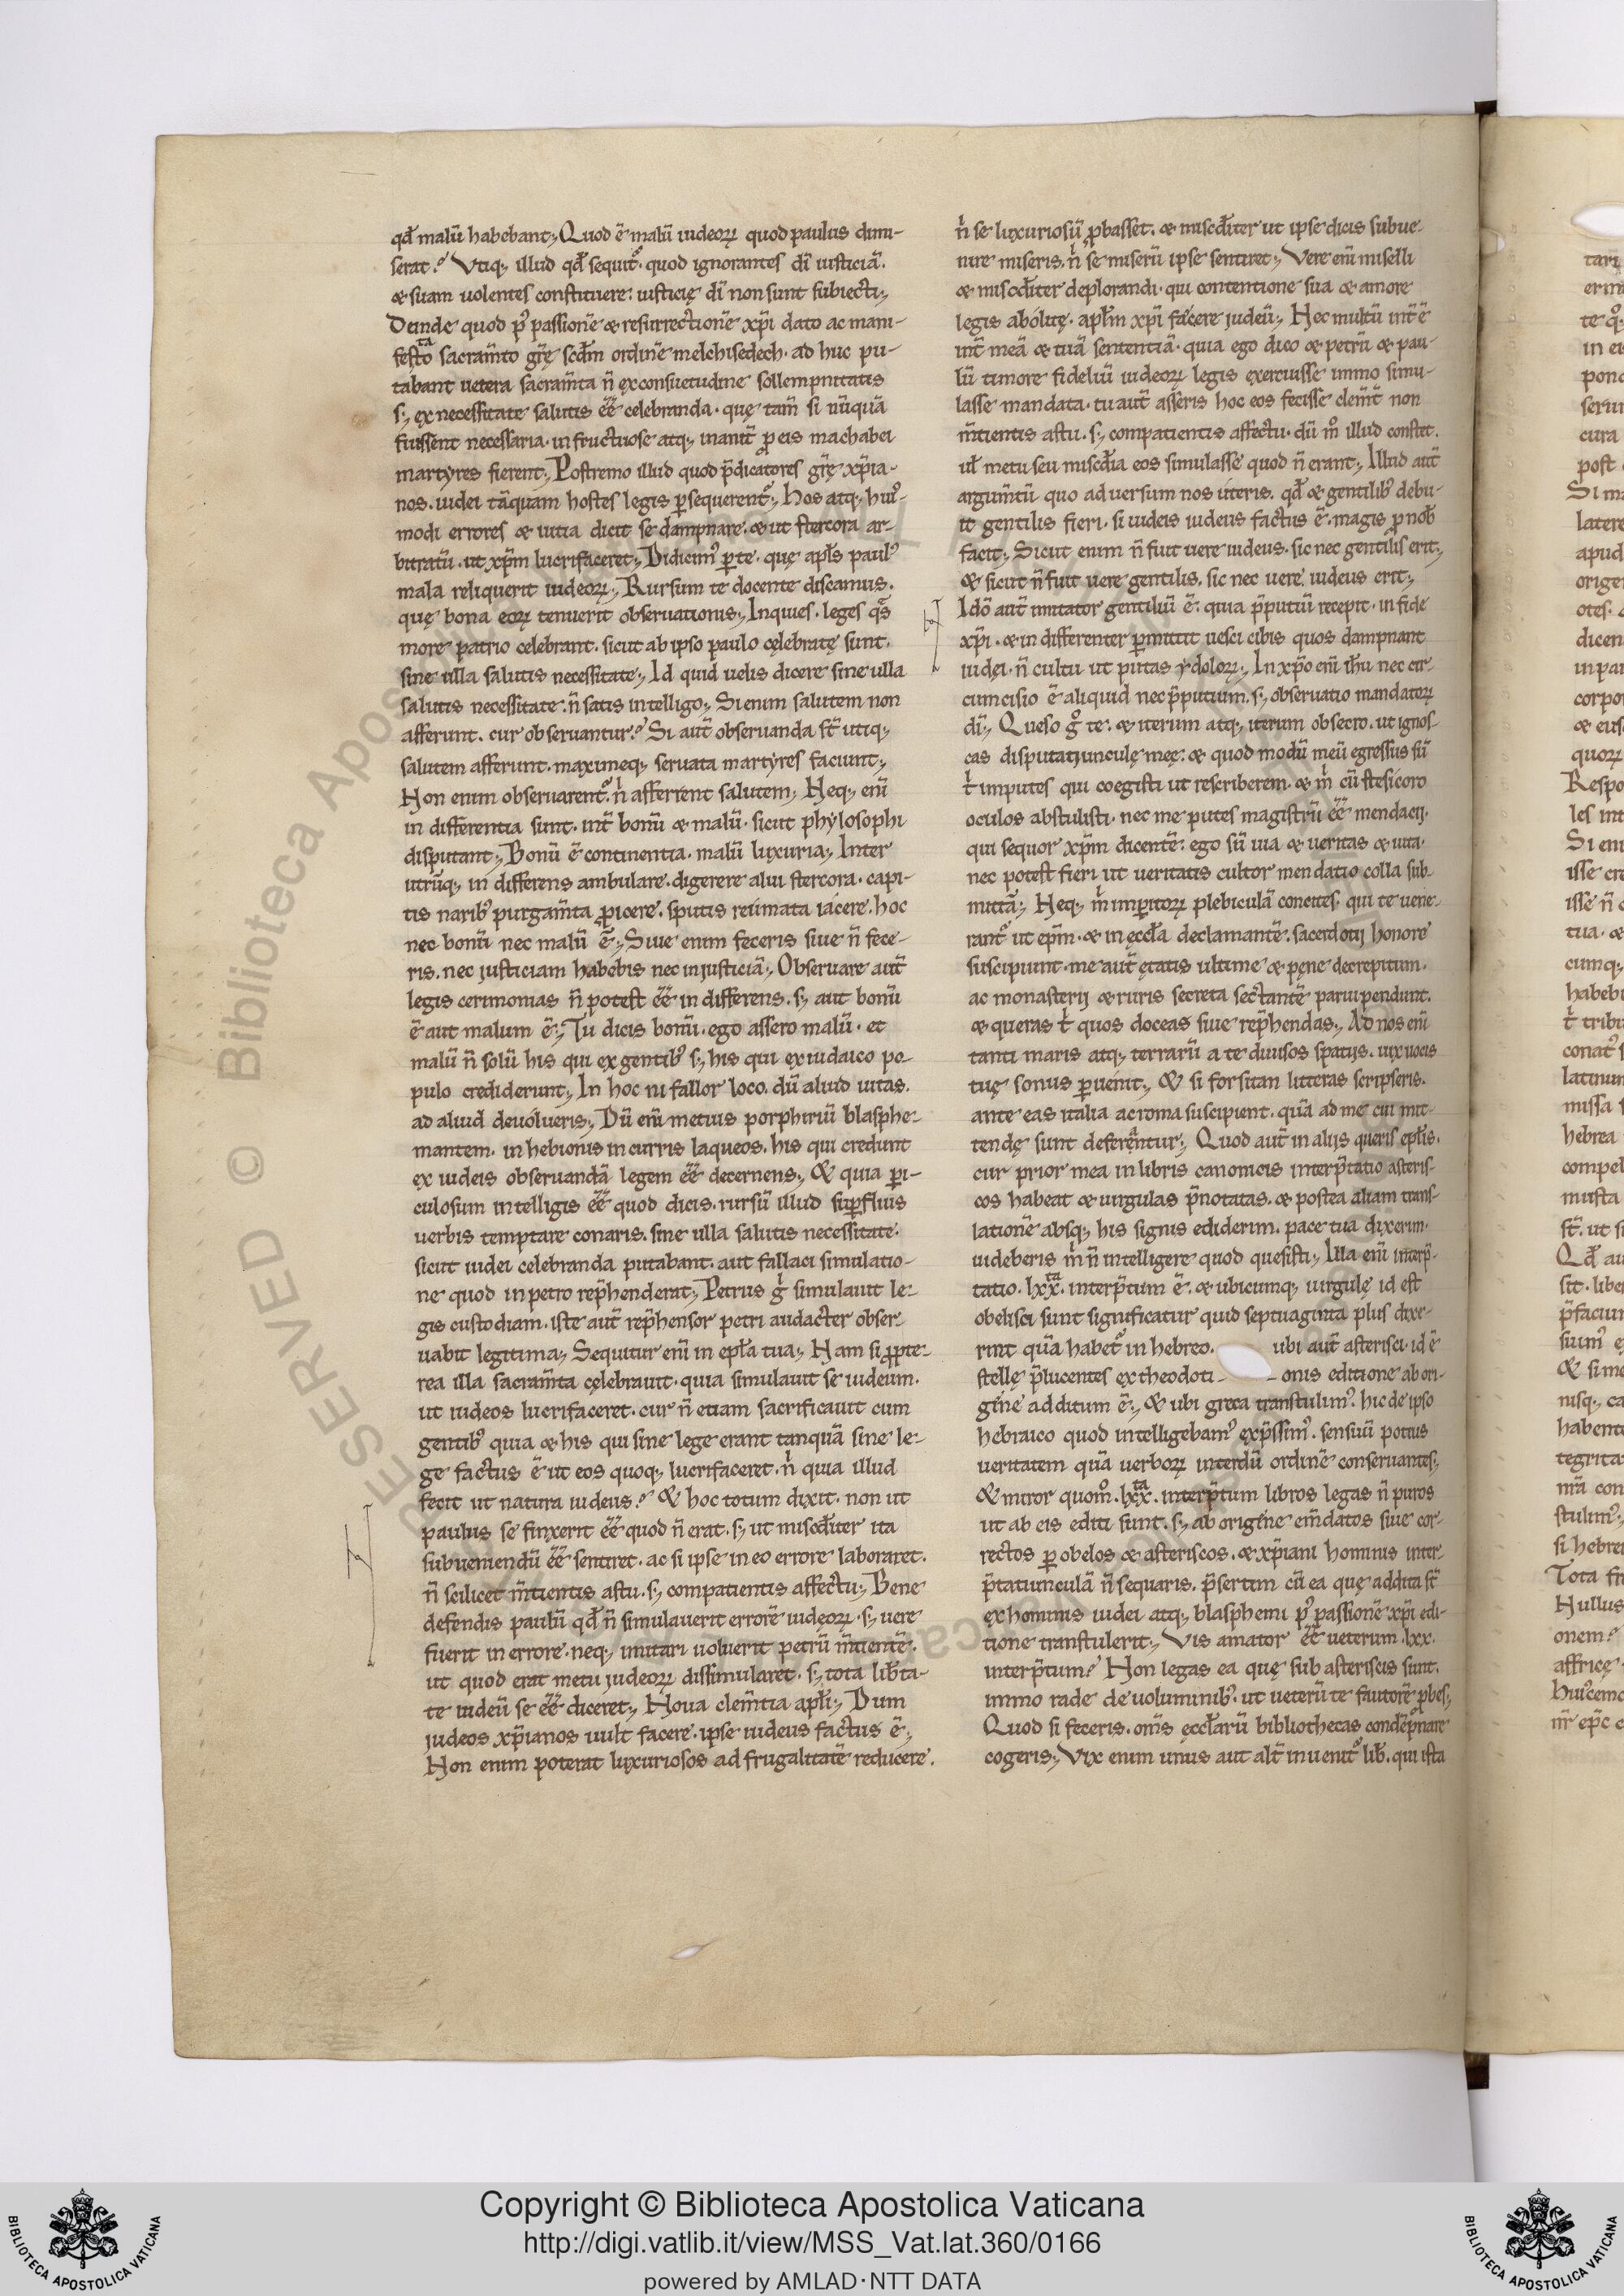 qd̄ malū habebant;, Quod ē malū iudeoꝝ quod paulus dimi-
serat? Vtiq; illud qd̄ sequit᷑. quod ignorantes dī iusticiā.
& suam uolentes constituere: iusticię dī non sunt subiecti;,
Deinde quod p᷒ passionē & resurrectionē xp̄i dato ac mani-
festo sacram̄to gr̄ę scd̄m ordinē melchisedech. ad huc pu-
tabant uetera sacram̄ta n̄ ex consuetudine sollempnitatis
s; ex necessitate salutis ēē celebranda. quę tam̄ si nūquā
fuissent necessaria. in fructuose atq; inanit̄ ꝓ eis machabei
martyres fierent;, Postremo illud quod p̄dicatores gr̄ę xp̄ia-
nos. iudei tāquam hostes legis ꝑsequerent᷑;, Hos atq; hui᷒-
modi errores & uitia dicit se dampnare. & ut stercora ar-
bitratū. ut xp̄m lucrifaceret;, Didicim᷒ ꝑ te. quę apl̄s paul᷒
mala reliquerit iudeoꝝ;, Rursum te docente discamus.
quę bona eoꝝ tenuerit obseruationis;, Inquies. leges q̄s
more patrio celebrant. sicut ab ipso paulo celebratę sunt.
sine ulla salutis necessitate;, Id quid uelis dicere sine ulla
salutis necessitate. n̄ satis intelligo;, Si enim salutem non
afferunt. cur obseruantur? Si aut̄ obseruanda st̄ utiq;
salutem afferunt. maximeq; seruata martyres faciunt;,
Non enim obseruarent᷑. nͥ afferrent salutem;, Neq; enī
in differentia sunt. int̄ bonū & malū. sicut phylosophi
disputant;, Bonū ē continentia. malū luxuria;, Inter
utrūq; in differens ambulare. digerere alui stercora. capi-
tis narib᷒ purgam̄ta ꝓicere. sputis reūmata iacere. hoc
nec bonū nec malū ē;, Siue enim feceris siue n̄ fece-
ris. nec iusticiam habebis nec iniusticiā;, Obseruare aut̄
legis cerimonias n̄ potest ēē in differens. s; aut bonū
ē aut malum ē;, Tu dicis bonū. ego assero malū. et
malū n̄ solū his qui ex gentib᷒ s; his qui ex iudaico po-
pulo crediderunt;, In hoc ni fallor loco. dū aliud uitas.
ad aliud deuolueris;, Dū enī metuis porphiriū blasphe-
mantem. in hebionis incurris laqueos. his qui credunt
ex iudeis obseruandā legem ēē decernens;, & quia ꝑi-
culosum intelligis ēē quod dicis. rursū illud suꝑfluis
uerbis temptare conaris. sine ulla salutis necessitate.
sicut iudei celebranda putabant. aut fallaci simulatio-
ne quod in petro rep̄henderat;, Petrus gͥ simulauit le-
gis custodiam. iste aut̄ rep̄hensor petri audacter obser-
uabit legitima;, Sequitur enī in epl̄a tua;, Nam si ꝓpte-
rea illa sacram̄ta celebrauit. quia simulauit se iudeum.
ut iudeos lucrifaceret. cur n̄ etiam sacrificauit cum
gentib᷒ quia & his qui sine lege erant tanquā sine le-
ge factus ē ut eos quoq; lucrifaceret. nͥ quia illud
fecit ut natura iudeus? & hoc totum dixit. non ut
paulus se finxerit ēē quod n̄ erat. s; ut miscd̄iter ita
subueniendū ēē sentiret. ac si ipse in eo errore laboraret.
n̄ scilicet m̄tientis astu. s; compatientis affectu;, Bene
defendis paulū qd̄ n̄ simulauerit errorē iudęoꝝ. s; uere
fuerit in errore. neq; imitari uoluerit petrū m̄tientē.
ut quod erat metu iudeoꝝ dissimularet. s; tota lib̄ta-
te iudeū se ēē diceret;, Noua clem̄tia apl̄i;, Dum
iudeos xp̄ianos uult facere. ipse iudeus factus ē;,
Non enim poterat luxuriosos ad frugalitatē reducere.
nͥ se luxuriosū ꝓbasset. & miscd̄iter ut ipse dicis subue-
nire miseris. nͥ se miserū ipse sentiret;, Vere enī miselli
& miscd̄iter deplorandi. qui contentione sua & amore
legis abolitę. apl̄m xp̄i facere iudeū;, Nec multū int̄ ē
int̄ meā & tuā sententiā. quia ego dico & petrū & pau-
lū timore fideliū iudeoꝝ legis exercuisse immo simu-
lasse mandata. tu aut̄ asseris hoc eos fecisse clem̄t̄ non
m̄tientis astu. s; compatientis affectu. dū m᷒ illud constet.
ul̄ metu seu miscd̄ia eos simulasse quod n̄ erant;, Illud aut̄
argum̄tū quo aduersum nos uteris. qd̄ & gentilib᷒ debu-
it gentilis fieri. si iudeis iudeus factus ē. magis ꝓ nob̄
facit;, Sicut enim n̄ fuit uere iudeus. sic nec gentilis erit;,
& sicut n̄ fuit uere gentilis. sic nec uere iudeus erit;,
Idō aut̄ imitator gentiliū ē. quia p̄putiū recepit. in fide
xp̄i. & in differenter ꝑmittit uesci cibis quos dampnant
iudęi. n̄ cultu ut putas ydoloꝝ;, In xp̄o enī ih̄u nec cir-
cumcisio ē aliquid nec p̄putium. s; obseruatio mandatoꝝ
dī;, Queso g᷒ te. & iterum atq; iterum obsecro. ut ignos-
cas disputatiunculę męę. & quod modū meū egressus sū
tͥ imputes qui coegisti ut rescriberem. & mͥ cū stesicoro
oculos abstulisti. nec me putes magistrū ēē mendacij.
qui sequor xp̄m dicentē. ego sū uia & ueritas & uita.
nec potest fieri ut ueritatis cultor mendatio colla sub-
mittā;, Neq; mͥ imꝑitoꝝ plebiculā concites. qui te uene-
rant᷑ ut ep̄m. & in ęccl̄a declamantē. sacerdotij honore
suscipiunt. me aut̄ ętatis ultime & pęne decrepitum.
ac monasterij & ruris secreta sectantē paruipendunt.
& queras tͥ quos doceas siue rep̄hendas;, Ad nos enī
tanti maris atq; terrarū a te diuisos spatijs. uix uocis
tuę sonus ꝑuenit;, & si forsitan litteras scripseris.
ante eas italia ac roma suscipient. quā ad me cui mit-
tendę sunt deferentur;, Quod aut̄ in alijs queris epl̄is.
cur prior mea in libris canonicis interp̄tatio asteris-
cos habeat & uirgulas p̄notatas. & postea aliam trans-
lationē absq; his signis ediderim. pace tua dixerim.
uideberis mͥ n̄ intelligere quod quesisti;, Illa enī interp̄-
tatio. lxx.ta interp̄tum ē. & ubicumq; uirgulę id est
obelisci sunt significatur quid septuaginta plus dixe-
rint quā habet᷑ in hebreo. ubi aut̄ asterisci. id ē
stellę p̄lucentes ex theodoti- -onis editione ab ori-
gene additum ē;, & ubi greca transtulim᷒. hic de ipso
hebraico quod intelligebam᷒ exp̄ssim᷒. sensuū potius
ueritatem quā uerboꝝ interdū ordinē conseruantes;,
& miror quom᷒. lxx.ta interp̄tum libros legas n̄ puros
ut ab eis editi sunt. s; ab origene em̄datos siue cor-
rectos ꝑ obelos & asteriscos. & xp̄iani hominis inter-
p̄tatiunculā n̄ sequaris. p̄sertim cū ea quę addita st̄
ex hominis iudei atq; blasphemi p᷒ passionē xp̄i edi-
tione transtulerit;, Vis amator ēē ueterum. lxx.
interp̄tum? Non legas ea quę sub asteriscis sunt.
immo rade de uoluminib᷒. ut ueterū te fautorē ꝓbes;,
Quod si feceris. om̄s ęccl̄arū bibliothecas condēpnare
cogeris;, Vix enim unus aut alt̄ inuenit᷑ lib̄. qui ista
Copyright © Biblioteca Apostolica Vaticana
http://digi.vatlib.it/view/MSS_Vat.lat.360/0166
powered by AMLAD·NTT DATA